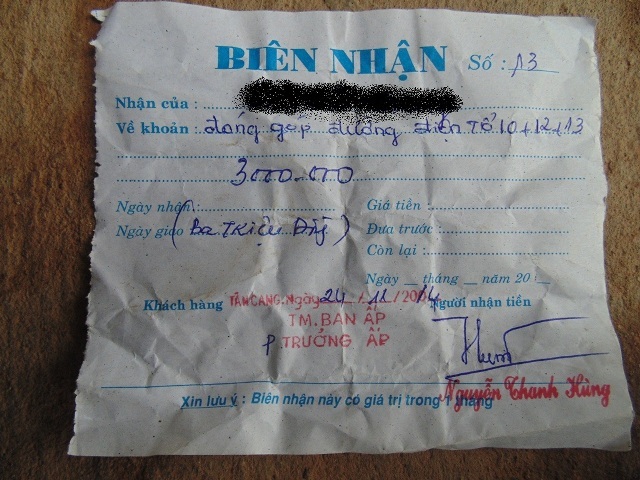 BIÊN NHẬN Số : 13
Nhận của :
Về khoản : đóng góp đường điện Tổ 10+12+13
3000.000
Ngày nhận : Giá tiền :
Ngày giao (Ba Triệu Đồng) Đưa trước :
Còn lại :
Ngày __ tháng __ năm 20 __
Khách hàng TÂN CANG, Ngày 24 / 11 / 2014 Người nhận tiền
TM.BAN ẤP
P.TRƯỞNG ẤP
Nguyễn Thanh Hùng
Xin lưu ý : Biên nhận này có giá trị trong 1 tháng